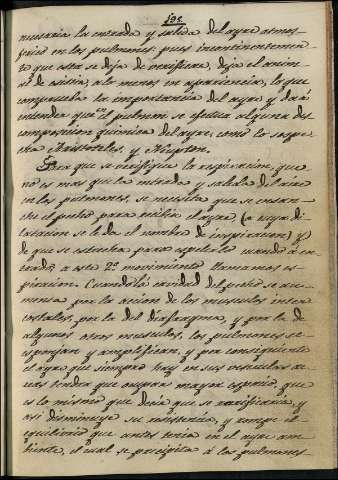 191.
necesaria la entrada y salida del ayre atmos-
ferico en los pulmones: pues incontinentemen-
te que esta se deja de verificar, deja el anim-
al de existir, a lo menos en apariencia, lo que
comprueba la importancia del ayre, y da á
entender que en el pulmon se efectua alguna des-
composicion quimica del ayre, como lo sospe-
cha Aristoteles, y
Para que se verifique la respiracion, que
no es mas que la entrada y salida del aire
en los pulmones, se necesita que se ensan-
che el pecho para recibir el ayre, (a cuya di-
latacion se le da el nombre de inspiracion) y
de que se estreche para espelerle cuando á en-
trado, a este 2º movimiento llamamos es-
piracion. Cuando la cavidad del pecho se au-
menta por la accion de los musculos inter-
costales, por la del diafragma, y por la de
algunos otros musculos, los pulmones se
esponjan y amplifican, y por consiguiente
el ayre que siempre hay en sus vesiculas ae-
reas tendra que ocupar mayor espacio, que
es lo mismo que decir que se rarificaria, y
asi disminuye su resistencia, y rompe el
equilibrio que antes tenia en el ayre am-
biente, el cual se precipita á los pulmones